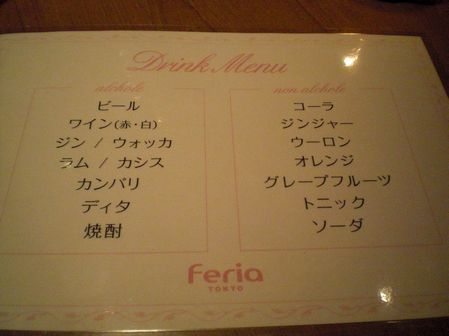 Drink Menu
alchole
ビール
ワイン(赤・白)
ジン / ウォッカ
ラム / カシス
カンパリ
ディタ
焼酎
non alchole
コーラ
ジンジャー
ウーロン
オレンジ
グレープフルーツ
トニック
ソーダ
Feria
TOKYO